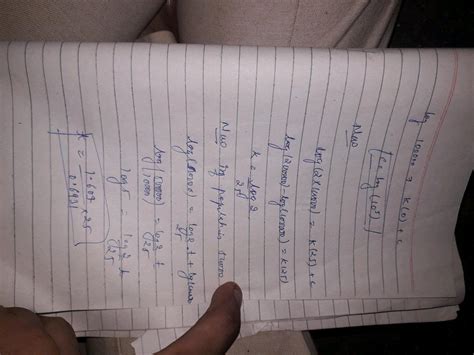 log 10000 = k(0) + c
c = log(10⁴)
Now
log(2×10000) = k(25) + c
log(20000) - log(10000) = k(25)
k = log 2 / 25
Now if population is 50000
log(50000) = log 2 / 25 t + log 10000
log(50000/10000) = log 2 / 25 t
log 5 = log 2 / 25 t
t = 1.609 × 25 / 0.6931